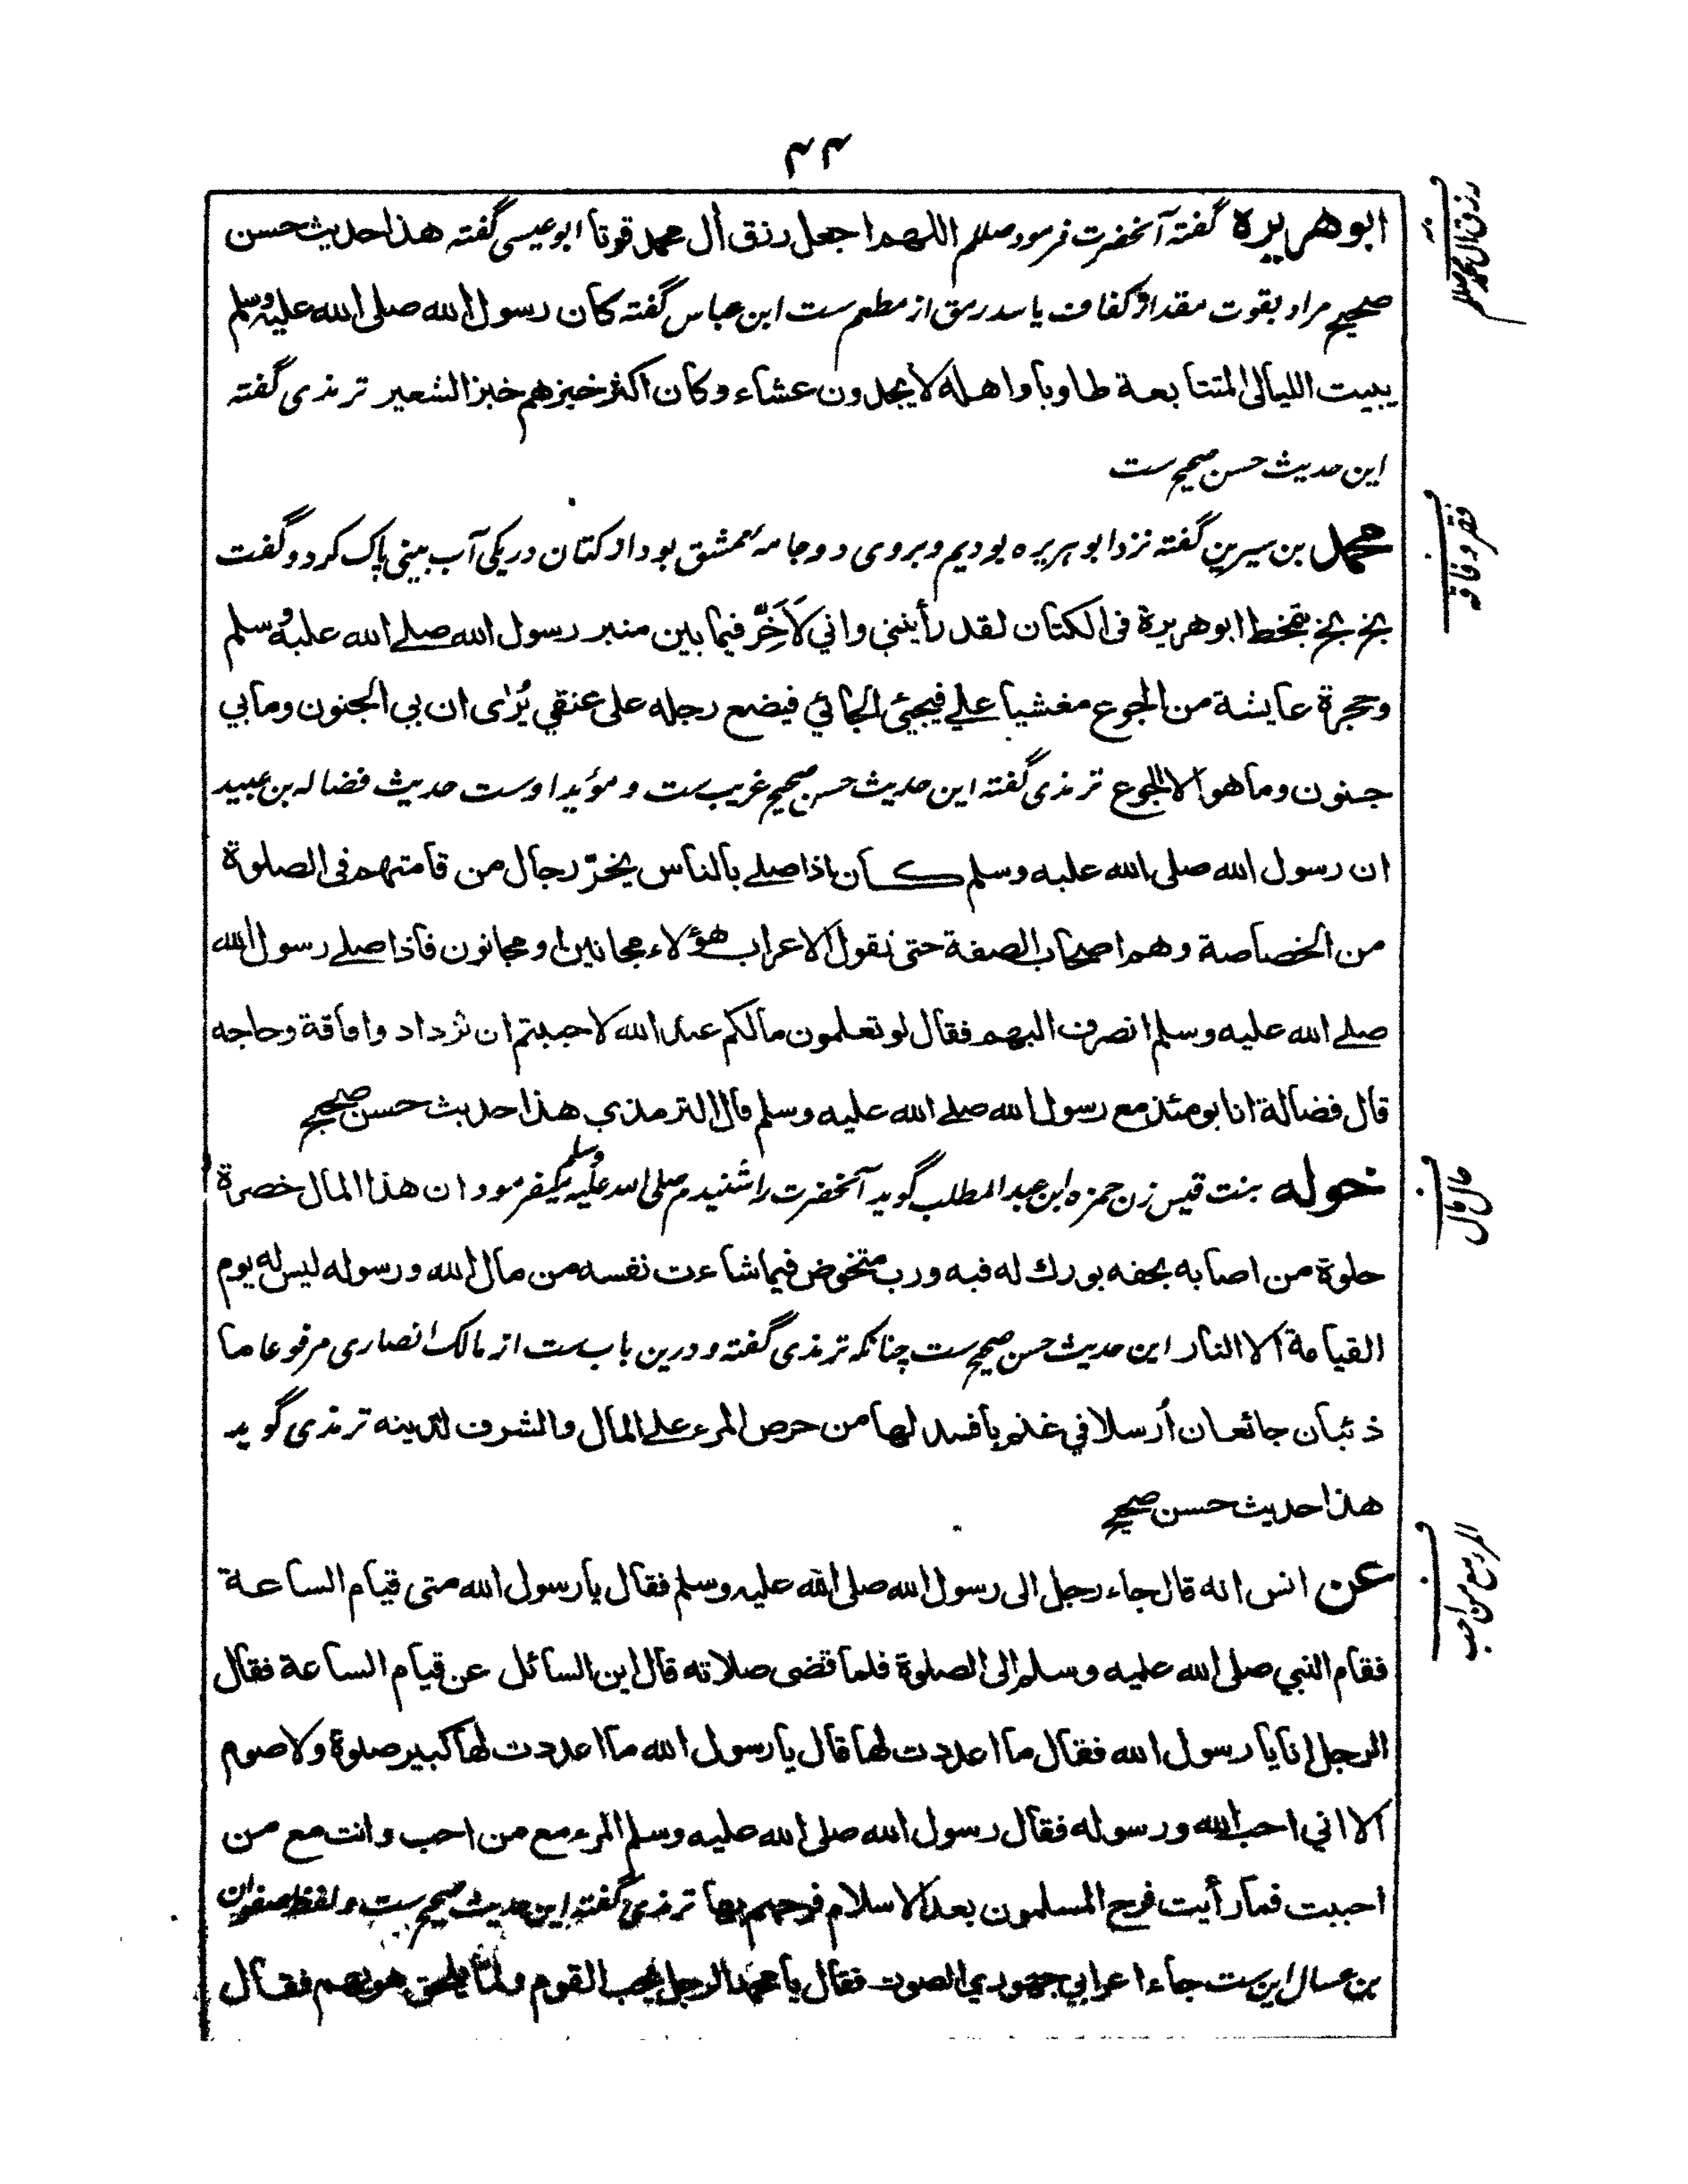 ۴۴
ابوهریرة گفته آنحضرت فرمود صللم اللهم اجعل رزق آل محمد قوتا ابو عیسی گفته هذا حدیث حسن
صحیح مراد بقوت مقدار کفاف یا سد رمق از مطعم ست ابن عباس گفته کان رسول الله صلی الله علیه وسلم
یبیت اللیالی المتتابعة طاویا واهله لا یجدون عشاء وکان اکثر خبزهم خبز الشعیر ترمذی گفته
این حدیث حسن صحیح ست
محمد بن سیرین گفته نزد ابو ہریره بودیم و بروی دو جامهٔ ممشق بود از کتان در یکی آب بینی پاک کرد و گفت
بخ بخ یتمخط ابو هریرة فی الکتان لقد رأیتنی وانی لَاَخِرُّ فیما بین منبر رسول الله صلے الله علیه وسلم
وحجرة عایشة من الجوع مغشیا علي فیجیئ الجائي فیضع رجله علی عنقي یُرٰی ان بي الجنون وما بي
جنون وما هو الا الجوع ترمذی گفته این حدیث حسن صحیح غریب ست و مؤید اوست حدیث فضاله بن عبید
ان رسول الله صلی الله علیه وسلم کان اذا صلے بالناس یخرّ رجال من قامتهم فی الصلوة
من الخصاصة وهم اصحاب الصفة حتی تقول الاعراب هؤلاء مجانین او مجانون فاذا صلے رسول الله
صلے الله علیه وسلم انصرف الیهم فقال لو تعلمون ما لکم عند الله لاحببتم ان تزداد وا فاقة وحاجه
قال فضالة انا یومئذ مع رسول الله صلے الله علیه وسلم قال الترمذي هذا حدیث حسن صحیح
خوله بنت قیس زن حمزه ابن عبد المطلب گوید آنحضرت را شنیدم صلی الله علیه وسلم میفرمود ان هذا المال خضرة
حلوة من اصابه بحقه بورك له فیه ورب متخوض فیما شاءت نفسه من مال الله ورسوله لیس له یوم
القیامة الا النار این حدیث حسن صحیح ست چنانکه ترمذی گفته و درین باب ست از مالک انصاری مرفوعا ما
ذئبان جائعان اُرسلا في غنم بافسد لها من حرص المرء علے المال والشرف لدینه ترمذی گوید
هذا حدیث حسن صحیح
عن انس انه قال جاء رجل الی رسول الله صلی الله علیه وسلم فقال یا رسول الله متی قیام الساعة
فقام النبي صلی الله علیه وسلم الی الصلوة فلما قضی صلاته قال این السائل عن قیام الساعة فقال
الرجل انا یا رسول الله فقال ما اعددت لها قال یا رسول الله ما اعددت لها کبیر صلوة ولا صوم
الا اني احب الله ورسوله فقال رسول الله صلی الله علیه وسلم المرء مع من احب وانت مع من
احببت فما رأیت فرح المسلمون بعد الاسلام فرحهم بها ترمذی گفته این حدیث صحیح ست و لفظ صفوان
بن عسال این ست جاء اعرابي جهوري الصوت فقال یا محمد الرجل یحب القوم ولمّا یلحق هو بهم فقال
رزق آل محمد صللم
فقر و فاقه
مال و قال
المرء مع من احب